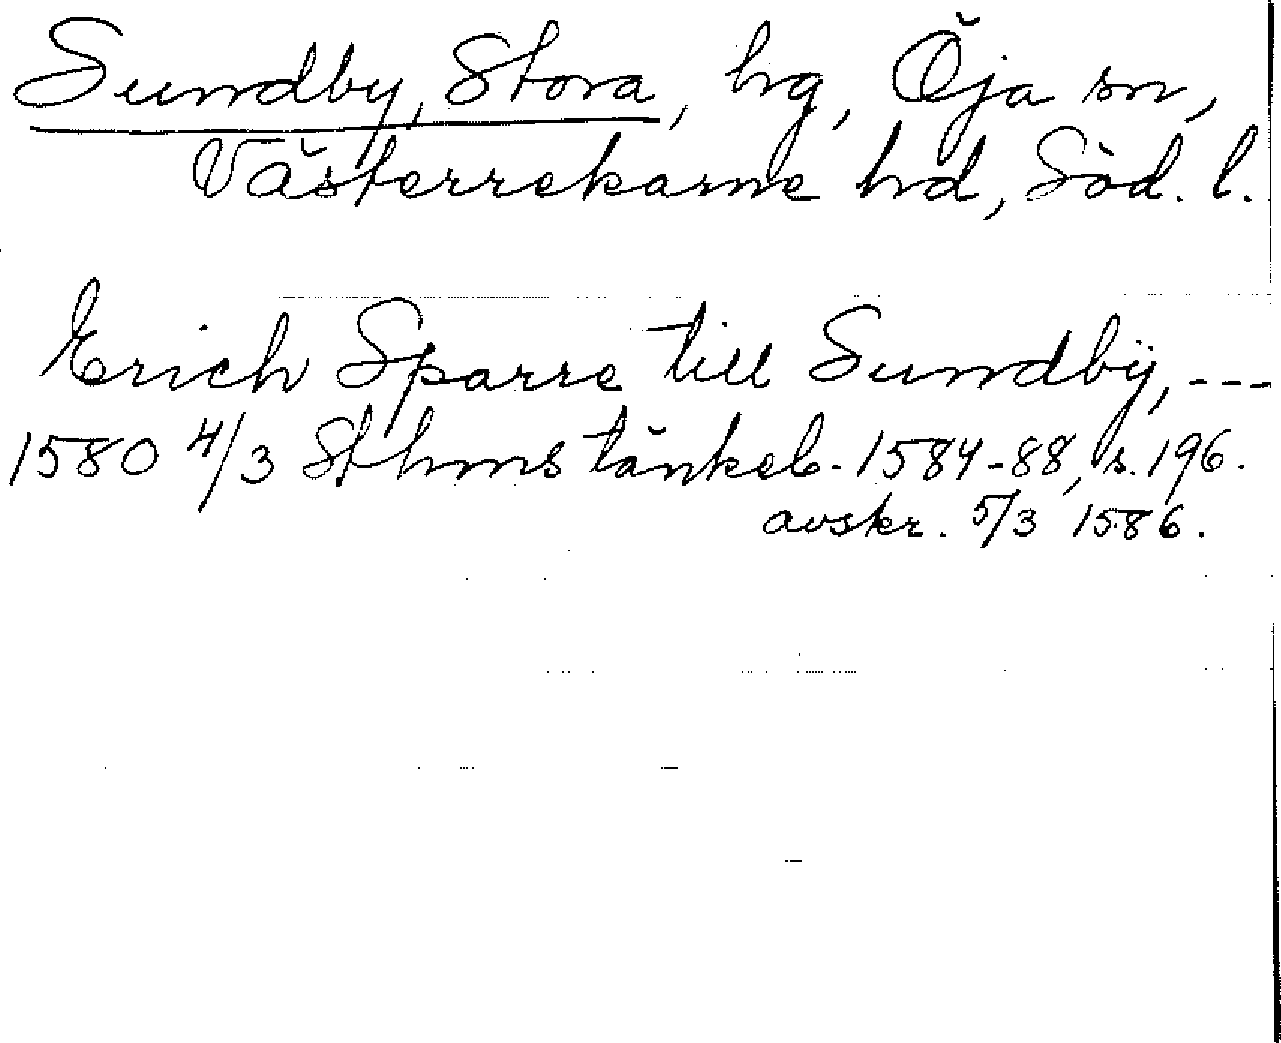 Sundby, Stora, hg, Öja sn,
Västerrekarne hd, Söd. l.
Erich Sparre till Sundbÿ, ---
1580 4/3 Sthms tänkeb. 1584-88, s. 196.
avskr. 5/3 1586.